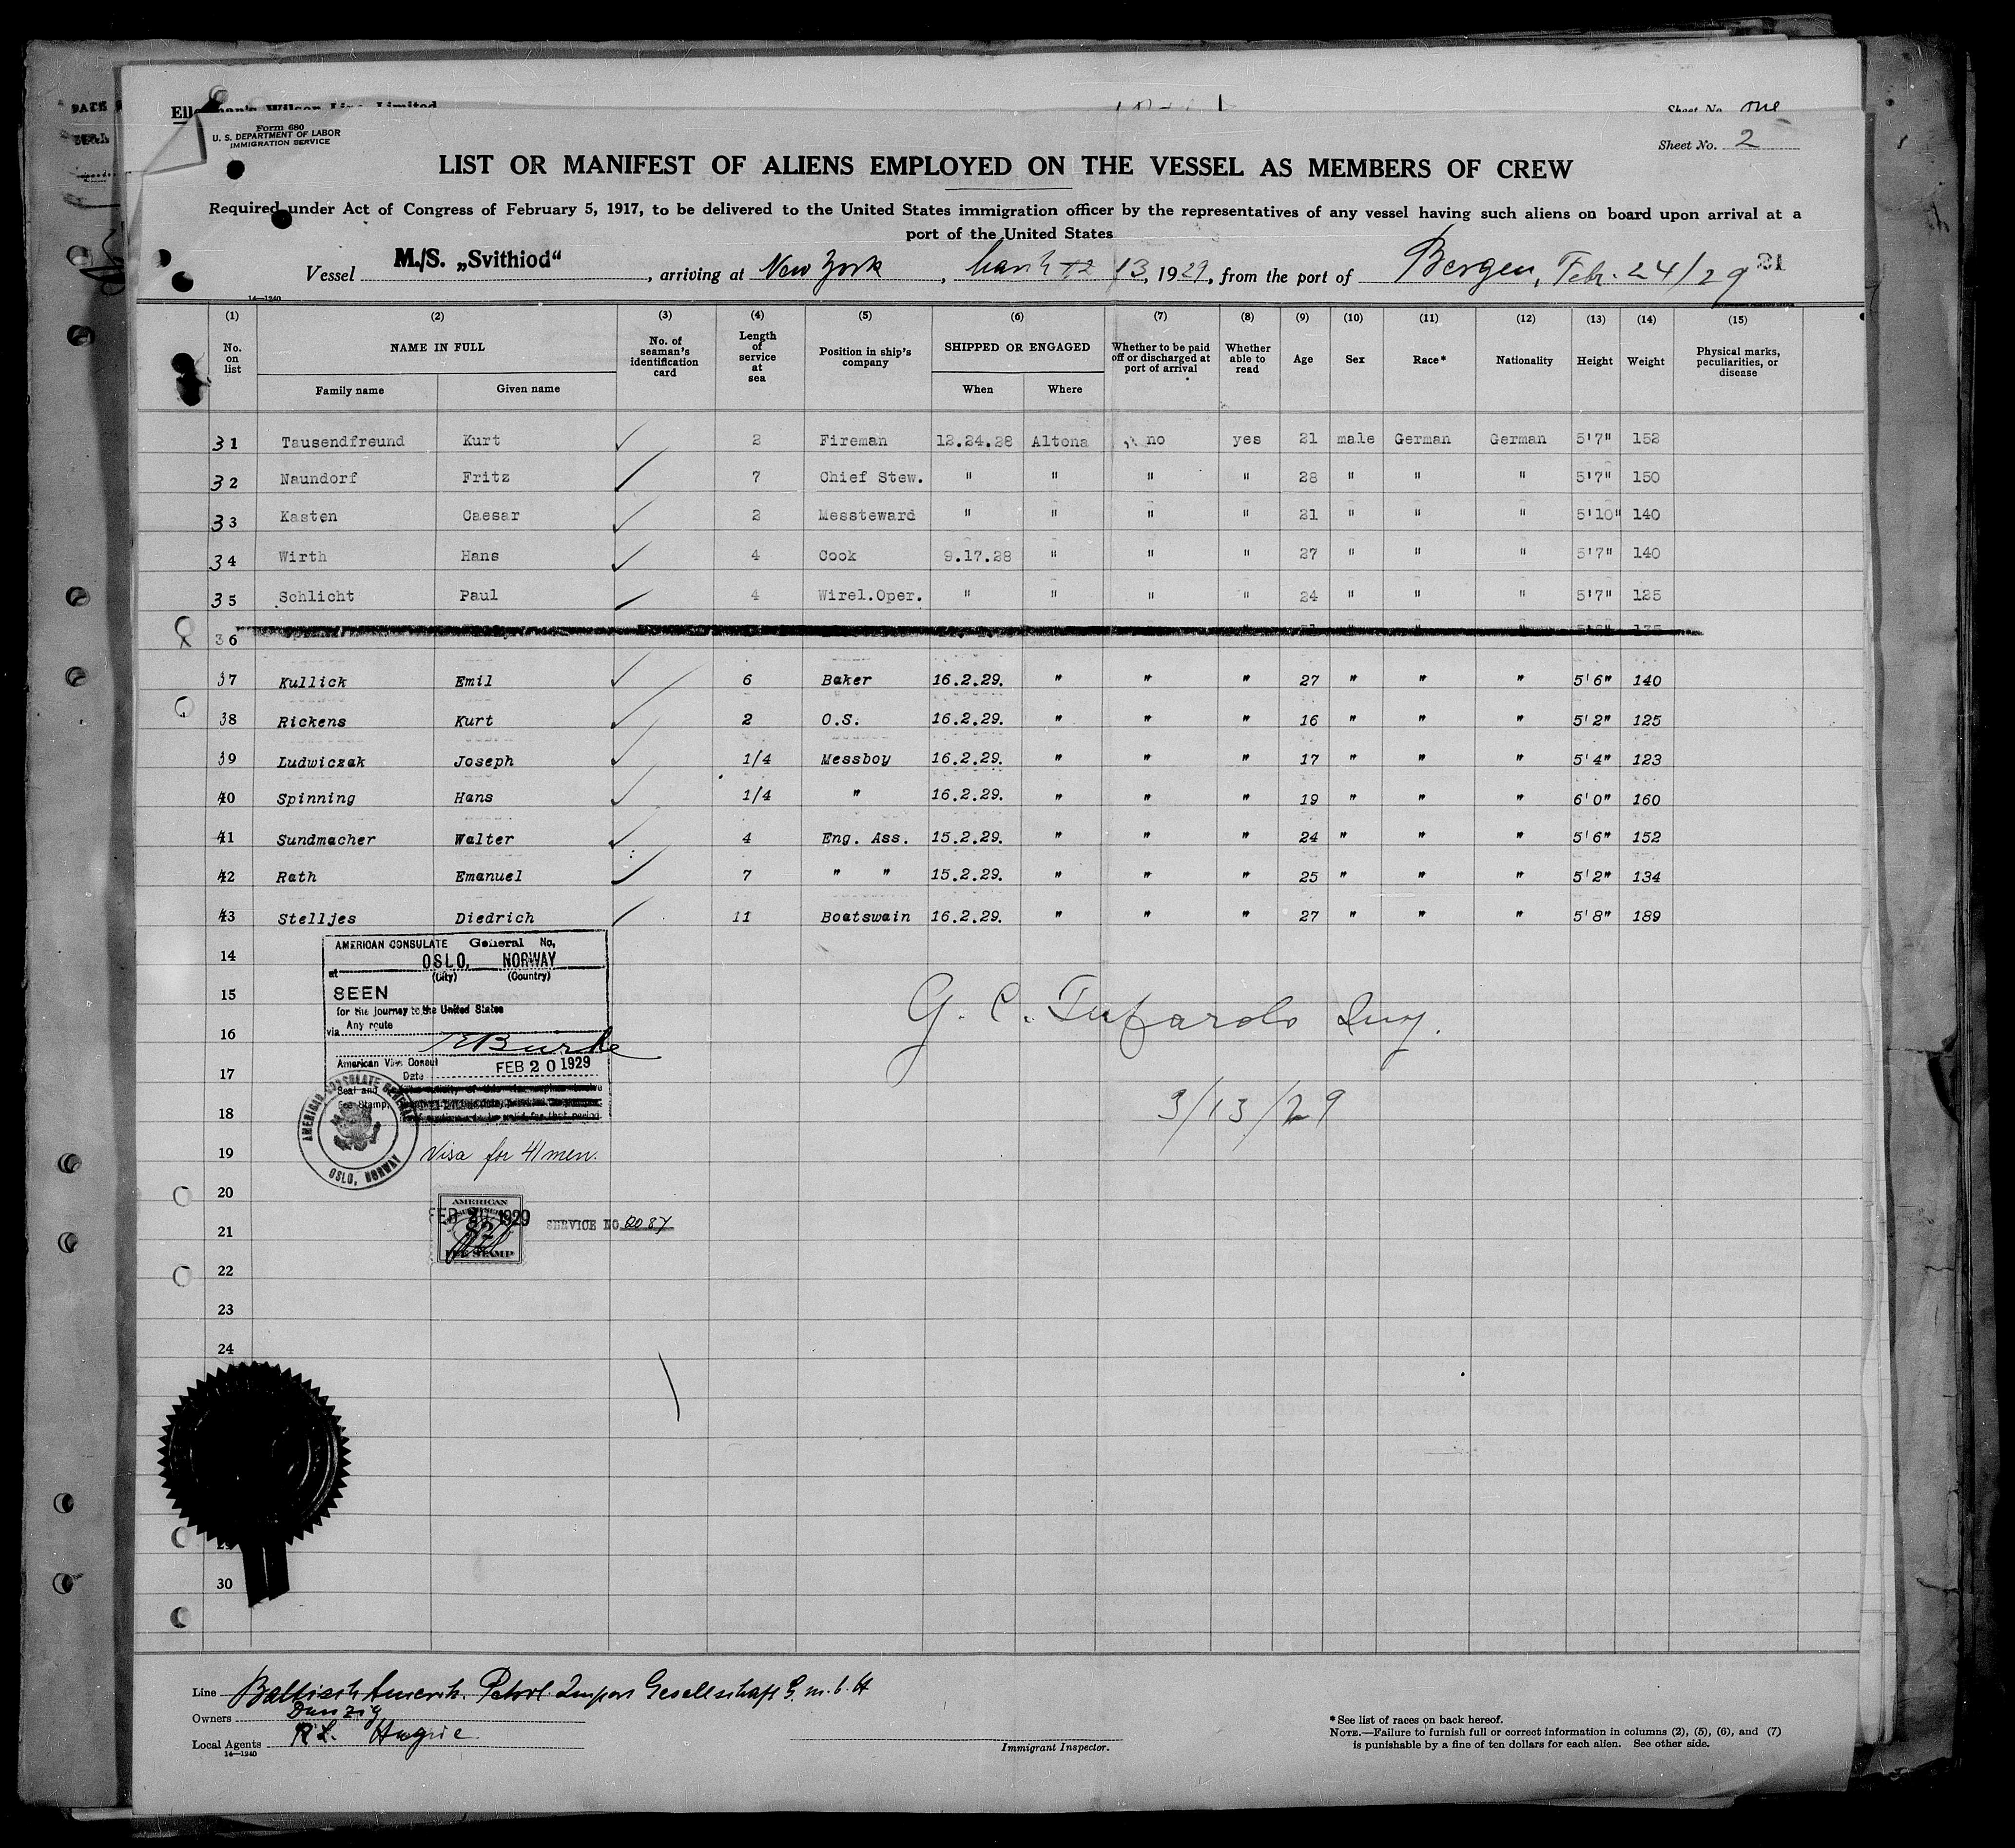 Limited
Sheet No. one
Form 680
U. S. DEPARTMENT OF LABOR
IMMIGRATION SERVICE
Sheet No. 2
LIST OR MANIFEST OF ALIENS EMPLOYED ON THE VESSEL AS MEMBERS OF CREW
Required under Act of Congress of February 5, 1917, to be delivered to the United States immigration officer by the representatives of any vessel having such aliens on board upon arrival at a
port of the United States
Vessel M./S. „Svithiod“, arriving at New York, March 12 13, 1929, from the port of Bergen, Feb. 24/29 21
14—1240
(1) (2) (3) (4) (5) (6) (7) (8) (9) (10) (11) (12) (13) (14) (15)
No. on list NAME IN FULL Family name Given name No. of seaman's identification card Length of service at sea Position in ship's company SHIPPED OR ENGAGED When Where Whether to be paid off or discharged at port of arrival Whether able to read Age Sex Race* Nationality Height Weight Physical marks, peculiarities, or disease
31 Tausendfreund Kurt 2 Fireman 12.24.28 Altona no yes 21 male German German 5'7" 152
32 Naundorf Fritz 7 Chief Stew. " " " " 28 " " " 5'7" 150
33 Kasten Caesar 2 Messteward " " " " 21 " " " 5'10" 140
34 Wirth Hans 4 Cook 9.17.28 " " " 27 " " " 5'7" 140
35 Schlicht Paul 4 Wirel.Oper. " " " " 24 " " " 5'7" 125
36
37 Kullick Emil 6 Baker 16.2.29. " " " 27 " " " 5'6" 140
38 Rickens Kurt 2 O.S. 16.2.29. " " " 16 " " " 5'2" 125
39 Ludwiczak Joseph 1/4 Messboy 16.2.29. " " " 17 " " " 5'4" 123
40 Spinning Hans 1/4 " 16.2.29. " " " 19 " " " 6'0" 160
41 Sundmacher Walter 4 Eng. Ass. 15.2.29. " " " 24 " " " 5'6" 152
42 Rath Emanuel 7 " " 15.2.29. " " " 25 " " " 5'2" 134
43 Stelljes Diedrich 11 Boatswain 16.2.29. " " " 27 " " " 5'8" 189
14
15
16
17
18
19
20
21
22
23
24
30
AMERICAN CONSULATE General No,
at OSLO, NORWAY
(City) (Country)
SEEN
for the journey to the United States
via Any route
EBurke
American Vice Consul
Date FEB 20 1929
Seal and
Fee Stamp,
AMERICAN CONSULATE GENERAL
OSLO, NORWAY
Visa for 41 men.
AMERICAN
FEB 20 1929
$2
FEE STAMP
SERVICE NO.
G. C. Tufarolo Insp.
3/13/29
Line Baltisch Amerik. Petrol. Import Gesellschaft G.m.b.H
Owners Danzig
Local Agents
14—1240
Immigrant Inspector.
*See list of races on back hereof.
NOTE.—Failure to furnish full or correct information in columns (2), (5), (6), and (7)
is punishable by a fine of ten dollars for each alien. See other side.